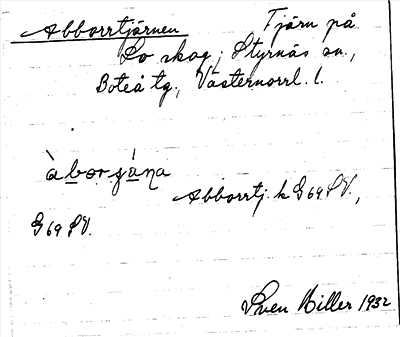 Abborrtjärnen Tjärn på
Lo skog; Styrnäs sn.,
Boteå tg., Västernorrl. l.
Abborrtj. k G69SV.,
G69SV.
Sven Hiller 1932